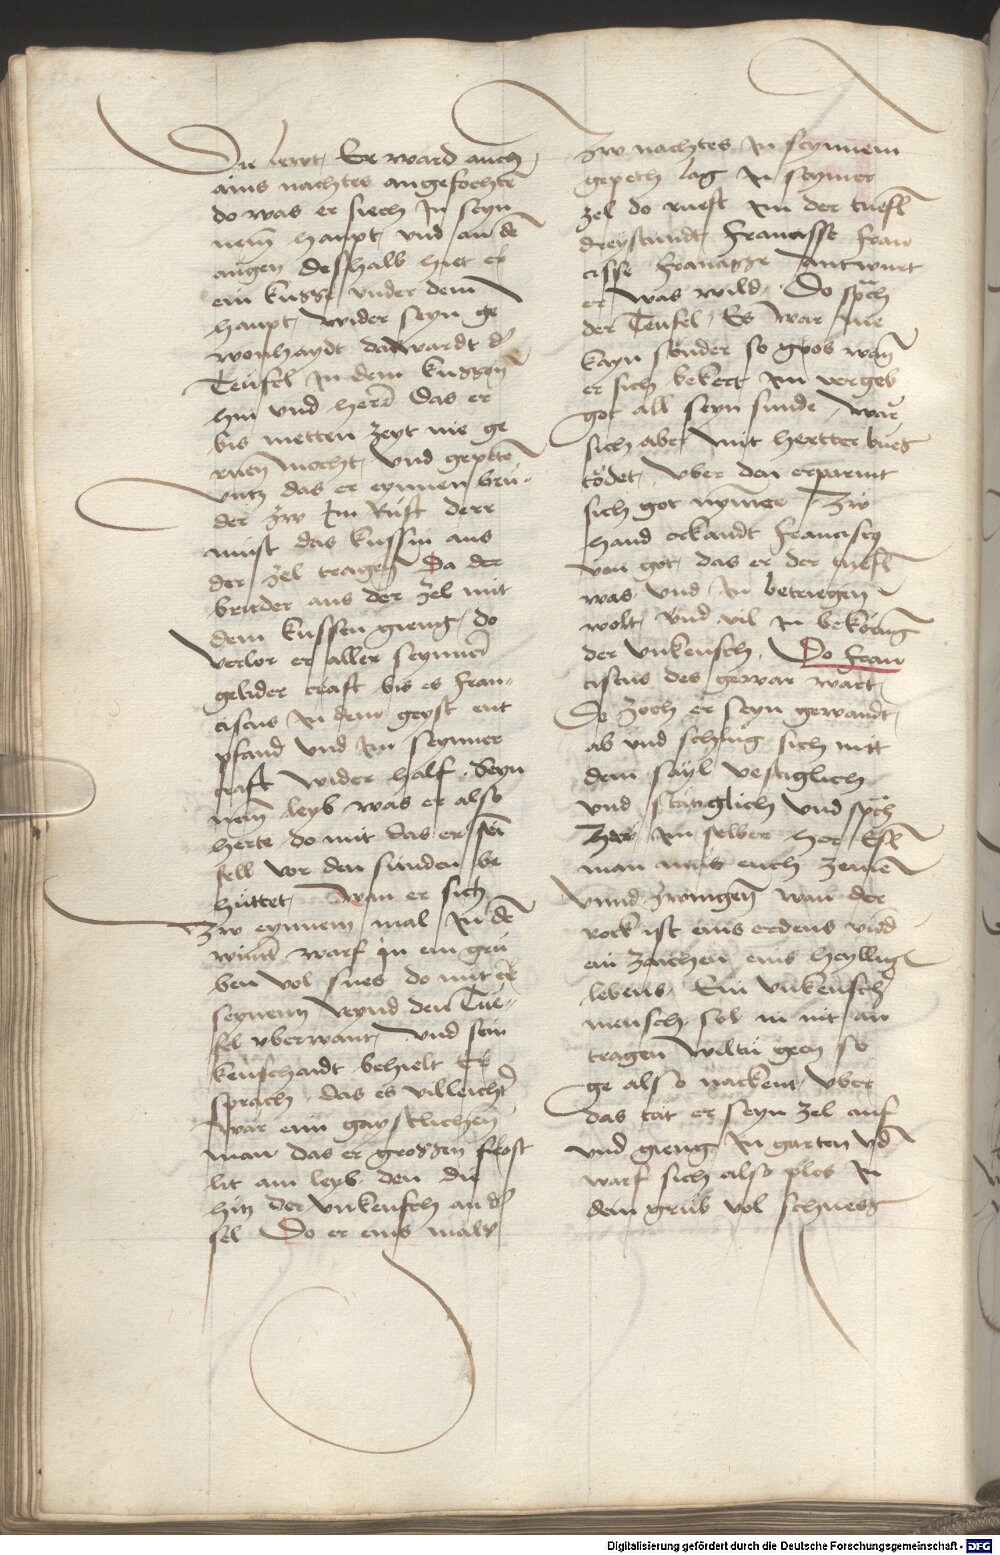 Die lewt, Er ward auch
ains nachtes angefochtē
do was er siech In seyn
nem̄ haupt, vnd an dē
augen deshalb hiet er
ein kusse vnder dem
haupt, wider seyn ge
wonhaydt, da wardt d'
Teufel In dem kussen
hin vnd herr Das er
bis metten zeyt nie ge
ruen̄ mocht, vnd peten
vntz das er eynnen bru-
der zw Im Ruft derr
must das kussin aus
der zel tragen̄ Da der
bruder aus der zel mit
dem kussen gieng, do
verlor er aller seynner
gelider craft bis es Fran-
ciscus In dem geyst ent
pfand vnd Im seynner
craft wider half. Seyn
nem̄ leyb was er also
herte do mit das er sein
sell vor den sunden be
huttet, Wan er sich
Zw eynnem mal In dē
winter warf in ein gru
ben vol snes do mit er
seynem veynd den Tue-
fel vberwant, vnd sein
keuschaidt behielt Er
sprach, das es villeicht
wär eim gaystlichen̄
man das er grossen frost
lit am leyb den die
hitz der vnkeusch an d'
sel Do er eins mals
Zw nachtes In seynnem
gepeth lag In seyner
zel do rueft Im der tuefl
dreystundt, Francisse Fran
cisse Francisse Antwurt
er was wild, Do sprch
der Teufel, Es war nie
kayn sunder so gros wan̄
er sich bekert Im vergeb
got all seyn sunde, Wär
sich aber mit hertter bues
tödet, vber den erparmt
sich got nymer, Zw
hand erkandt Francisco
von got, das er der tuefl
was vnd In betriegen
wolt, vnd vil In bekörūg
der vnkeusch, Do Fran
ciscus des gewar wart,
Do zoch er seyn gewandt,
ab vnd schlug sich mit
dem sayl vestiglich
vnd stätiglich vnd sprch
Zw Im selber her Esl
man mus euch zemen̄
vnnd zwingen̄ wan der
rock ist eins ordens vnd
ein zaichen eins heyllig
lebens, Ein vnkeusch
mensch sol in nit an
tragen wiltu gen so
ge also nackent, vber
das tät er seyn zel auf
vnd gieng In garten vn̄
warf sich also plos In
dein grub vol schnees
Digitalisierung gefördert durch die Deutsche Forschungsgemeinschaft - DFG